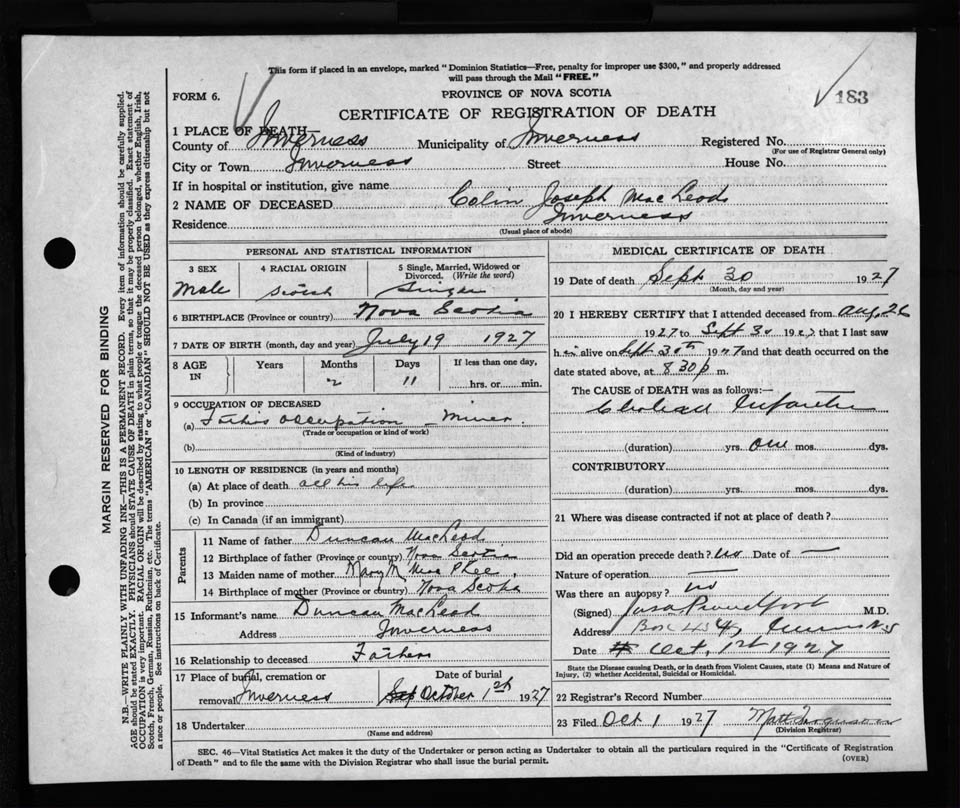 This form if placed in an envelope, marked "Dominion Statistics—Free, penalty for improper use $300," and properly addressed
will pass through the Mail "FREE."
FORM 6.
PROVINCE OF NOVA SCOTIA
183
CERTIFICATE OF REGISTRATION OF DEATH
1 PLACE OF DEATH—
County of Inverness Municipality of Inverness Registered No.
(For use of Registrar General only)
City or Town Inverness Street House No.
If in hospital or institution, give name
2 NAME OF DECEASED Colin Joseph MacLeod
Residence Inverness
(Usual place of abode)
MARGIN RESERVED FOR BINDING
N.B.—WRITE PLAINLY WITH UNFADING INK—THIS IS A PERMANENT RECORD. Every item of information should be carefully supplied.
AGE should be stated EXACTLY. PHYSICIANS should STATE CAUSE OF DEATH in plain terms, so that it may be properly classified. Exact statement of
OCCUPATION is very important. RACIAL ORIGIN will be described by stating to what people or tongue the deceased person belonged, whether English, Irish,
Scotch, French, German, Russian, Ruthenian, etc. The terms "AMERICAN" or "CANADIAN" SHOULD NOT BE USED as they express citizenship but not
a race or people. See instructions on back of Certificate.
PERSONAL AND STATISTICAL INFORMATION
3 SEX
Male
4 RACIAL ORIGIN
Scotch
5 Single, Married, Widowed or
Divorced. (Write the word)
Single
6 BIRTHPLACE (Province or country) Nova Scotia
7 DATE OF BIRTH (month, day and year) July 19 1927
8 AGE
IN
Years
Months
2
Days
11
If less than one day,
hrs. or min.
9 OCCUPATION OF DECEASED
(a) Father's occupation — Miner.
(Trade or occupation or kind of work)
(b)
(Kind of industry)
10 LENGTH OF RESIDENCE (in years and months)
(a) At place of death all his life
(b) In province
(c) In Canada (if an immigrant)
Parents
11 Name of father Duncan MacLeod
12 Birthplace of father (Province or country) Nova Scotia
13 Maiden name of mother Mary M MacPhee
14 Birthplace of mother (Province or country) Nova Scotia
15 Informant's name Duncan MacLeod
Address Inverness
16 Relationship to deceased Father
17 Place of burial, cremation or
removal Inverness
Date of burial
October 1st 1927
18 Undertaker
(Name and address)
MEDICAL CERTIFICATE OF DEATH
19 Date of death Sept 30 1927
(Month, day and year)
20 I HEREBY CERTIFY that I attended deceased from Aug 26
1927 to Sept 30 1927 that I last saw
him alive on Sept 30th 1927 and that death occurred on the
date stated above, at 8 30 p m.
The CAUSE of DEATH was as follows:—
Infantum
(duration) yrs. one mos. dys.
CONTRIBUTORY
(duration) yrs. mos. dys.
21 Where was disease contracted if not at place of death?
Did an operation precede death? No Date of —
Nature of operation —
Was there an autopsy? no
(Signed) M.D.
Address Box 434, N.S
Date Oct, 1st 1927
State the Disease causing Death, or in death from Violent Causes, state (1) Means and Nature of
Injury, (2) whether Accidental, Suicidal or Homicidal.
22 Registrar's Record Number
23 Filed Oct 1 1927 Matt
(Division Registrar)
SEC. 46—Vital Statistics Act makes it the duty of the Undertaker or person acting as Undertaker to obtain all the particulars required in the "Certificate of Registration
of Death" and to file the same with the Division Registrar who shall issue the burial permit.
(OVER)